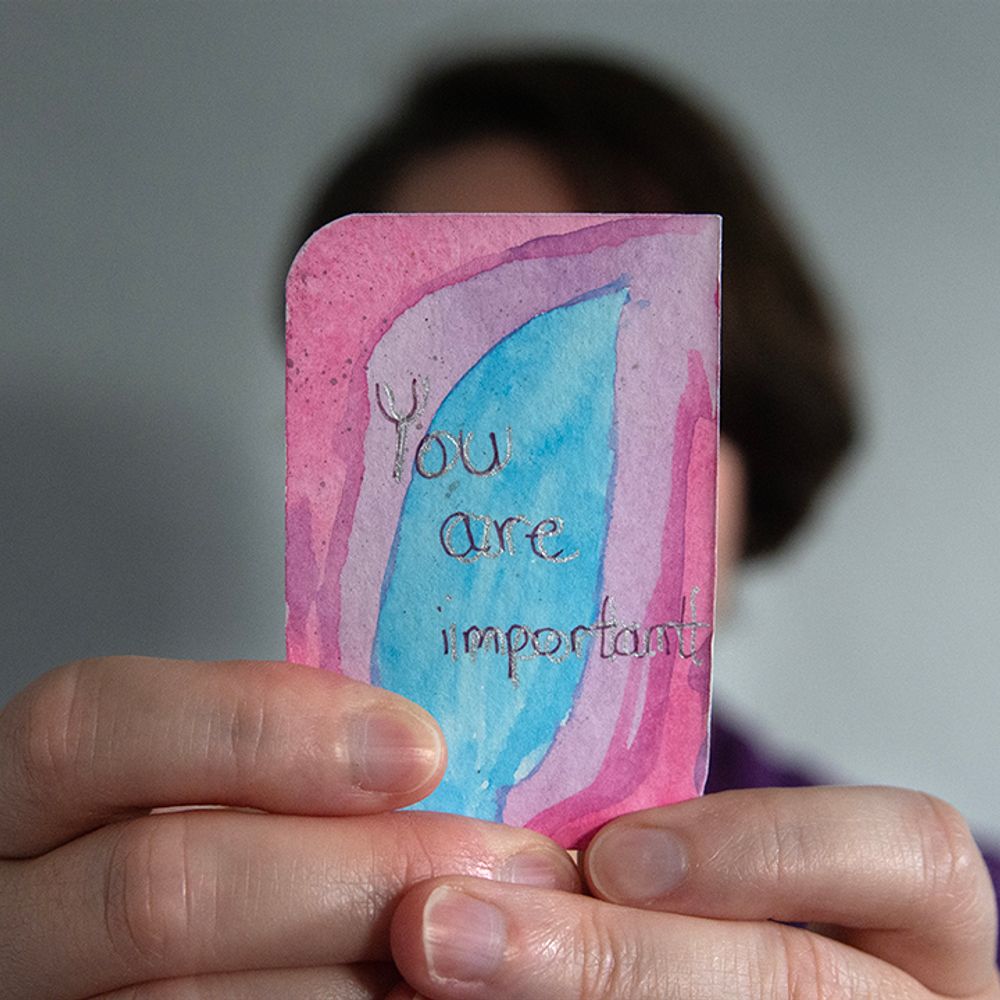 You
are
important